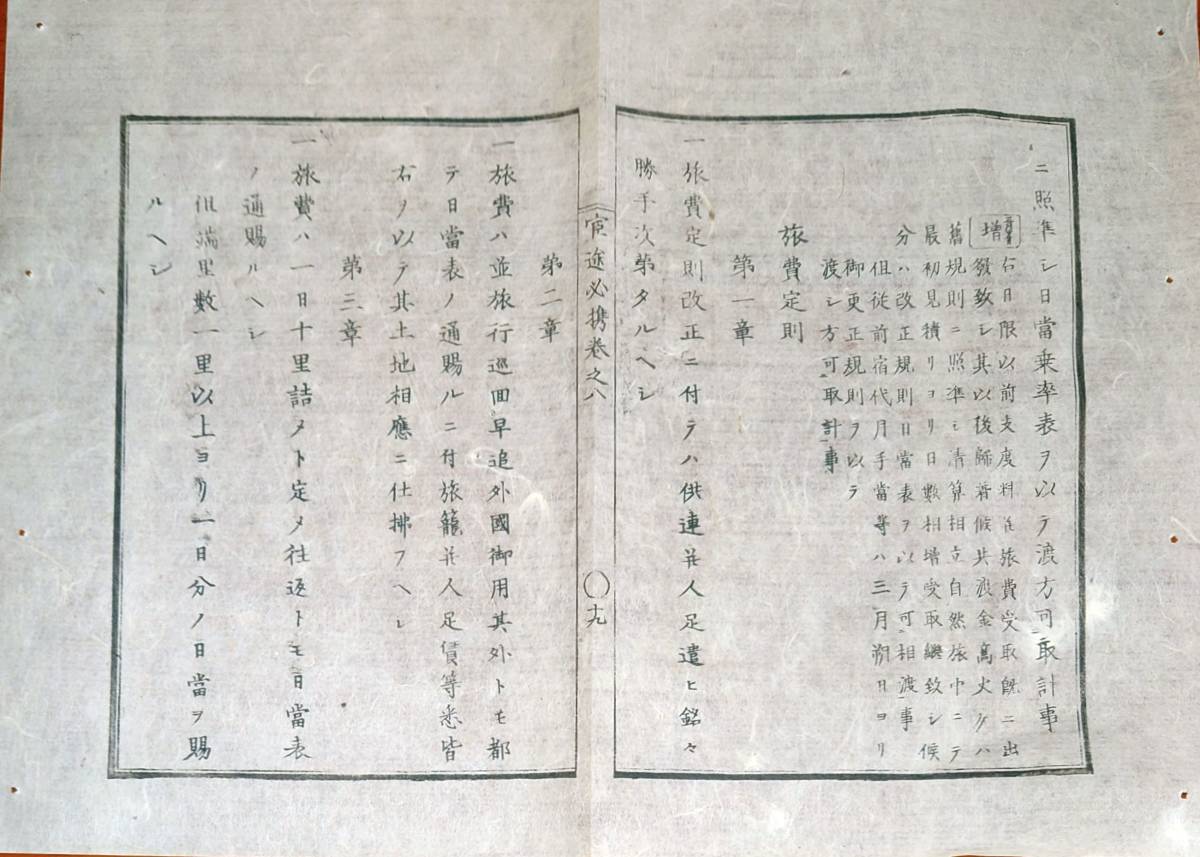 ニ照準シ日當乗率表ヲ以テ渡方可取計事
増 右日限以前支度料并旅費受取既ニ出
發致シ其以後歸着候共渡金高大ケハ
舊規則ニ照準シ清算相立自然旅中ニテ
最初見積リヨリ日數相増受取繼致シ候
分ハ改正規則日當表ヲ以テ可相渡事
但從前宿代月手當等ハ三月朔日ヨリ
御更正規則ヲ以テ
渡シ方可取計事
旅費定則
第一章
一旅費定則改正ニ付テハ供連并人足遣ヒ銘々
勝手次第タルヘシ
官途必携巻之八
〇十九
第二章
一旅費ハ並旅行巡回早追外國御用其外トモ都
テ日當表ノ通賜ルニ付旅籠并人足賃等悉皆
右ヲ以テ其土地相應ニ仕拂フヘシ
第三章
一旅費ハ一日十里詰メト定メ往返トモ日當表
ノ通賜ルヘシ
但端里數一里以上ヨリ一日分ノ日當ヲ賜
ルヘシ